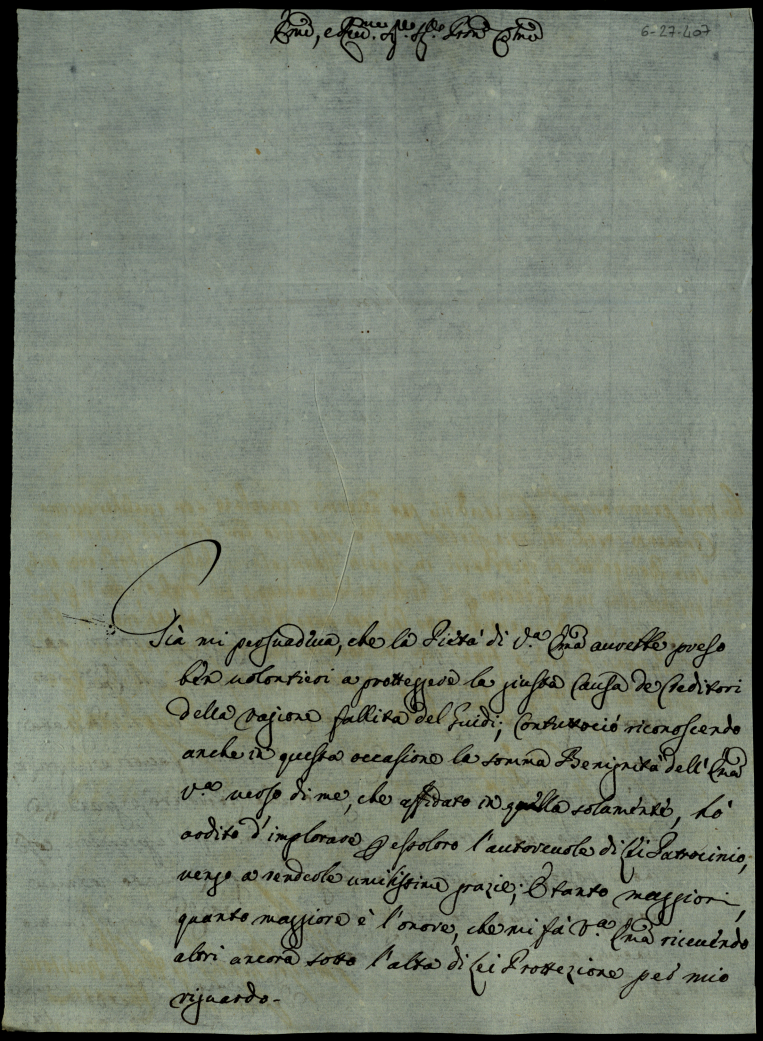 Em̃o, e Rev.mo Sig.re Sig.re Pron̄e Col̄mo
6-27-407
Già mi persuadeva, che la Pietà di V.a Em̃a avrebbe preso
ben volontieri a proteggere la giusta Causa de Creditori
della ragione fallita del Guidi; Contuttociò riconoscendo
anche in questa occasione la somma Benignità dell'Em̃a
V.ra verso di me, che affidato in quella solamente, hò
ardito d'implorare p essoloro l'autorevole di Lei Patrocinio,
vengo a rendeole umilissime grazie; E tanto maggiori,
quanto maggiore è l'onore, che mi fà V.a Em̃a ricevendo
altri ancora sotto l'alta di Lei Protezione per mio
riguardo-